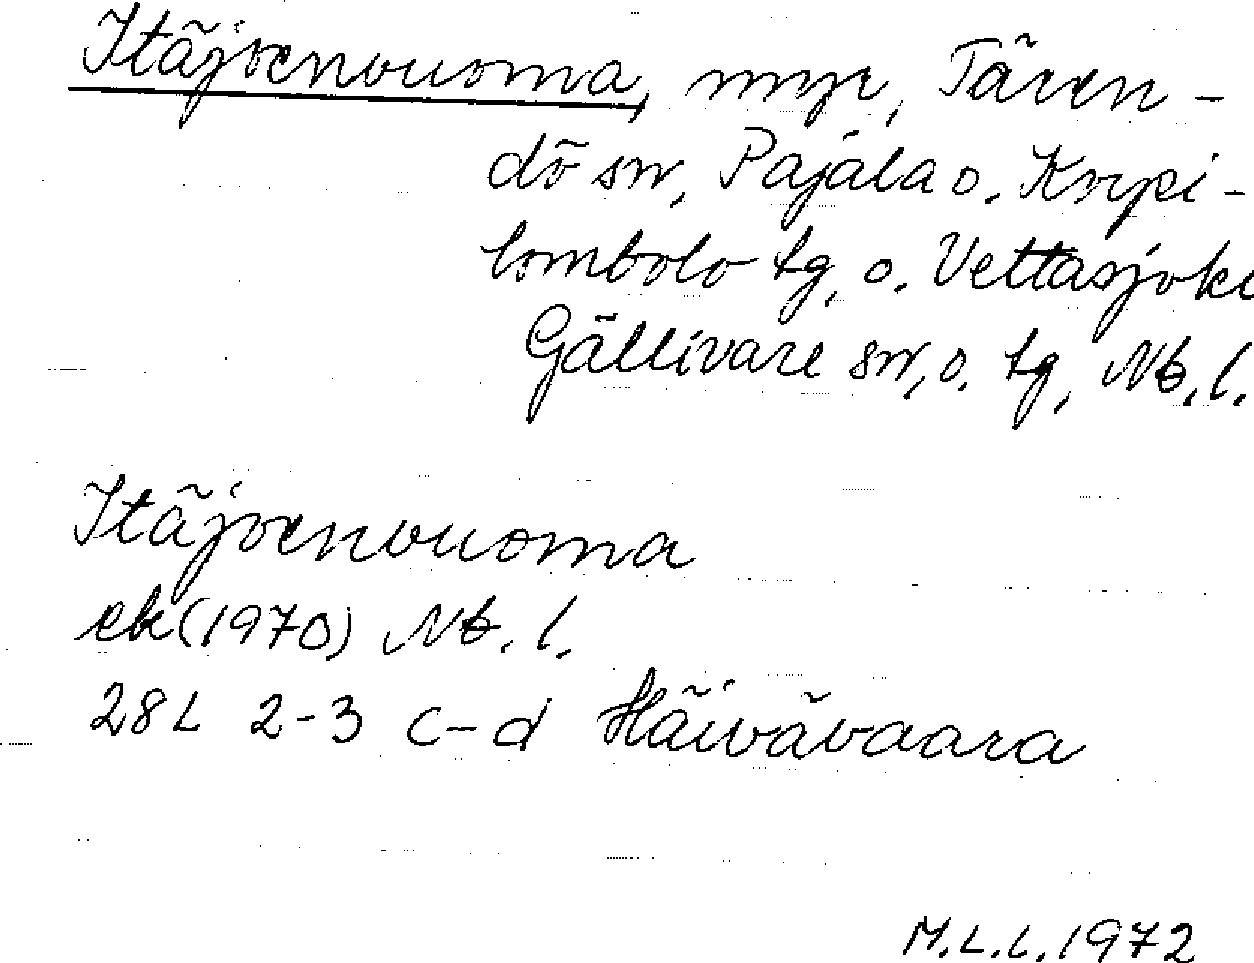 Itäjoenvuoma, myr, Tären-
dö sn, Pajala o. Korpi-
lombolo tg, o. Vettasjoki
Gällivare sn, o. tg, Nb. l.
Itäjoenvuoma
ek (1970) Nb. l.
28L 2-3 c-d Häivävaara
M.L.L. 1972